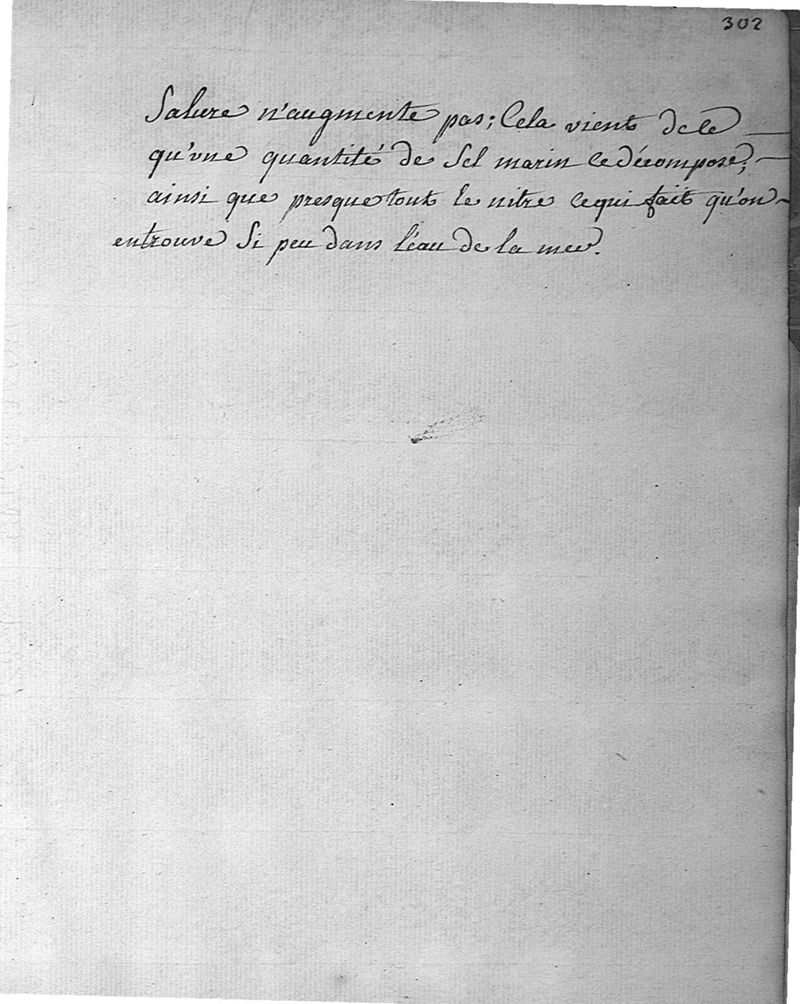 302
Salure n'augmente pas; Cela vient de ce
qu'une quantité de Sel marin ce décompose;
ainsi que presque tout le nitre ce qui fait qu'on
en trouve Si peu dans l'éau de la mer.